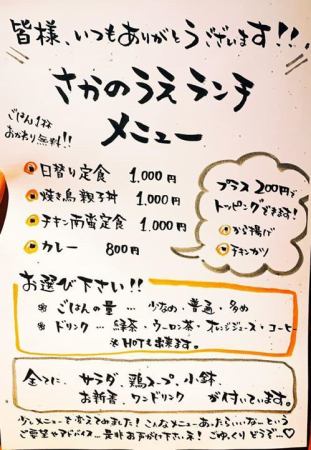 皆様、いつもありがとうございます!!
さかのうえランチ
メニュー
ごはん1杯
おかわり無料!!
日替り定食 1,000円
焼き鳥親子丼 1,000円
チキン南蛮定食 1,000円
カレー 800円
プラス200円で
トッピングできます!
から揚げ
チキンカツ
お選び下さい!!
※ ごはんの量 … 少なめ・普通・多め
※ ドリンク … 緑茶・ウーロン茶・オレンジジュース・コーヒー
※HOTも出来ます。
全てに、サラダ、鶏スープ、小鉢、
お新香、ワンドリンク が付いています。
少しメニューを変えてみました! こんなメニューあったらいいなーという
ご要望やアドバイス…是非お声がけ下さいネ! ごゆっくりどうぞ〜♡